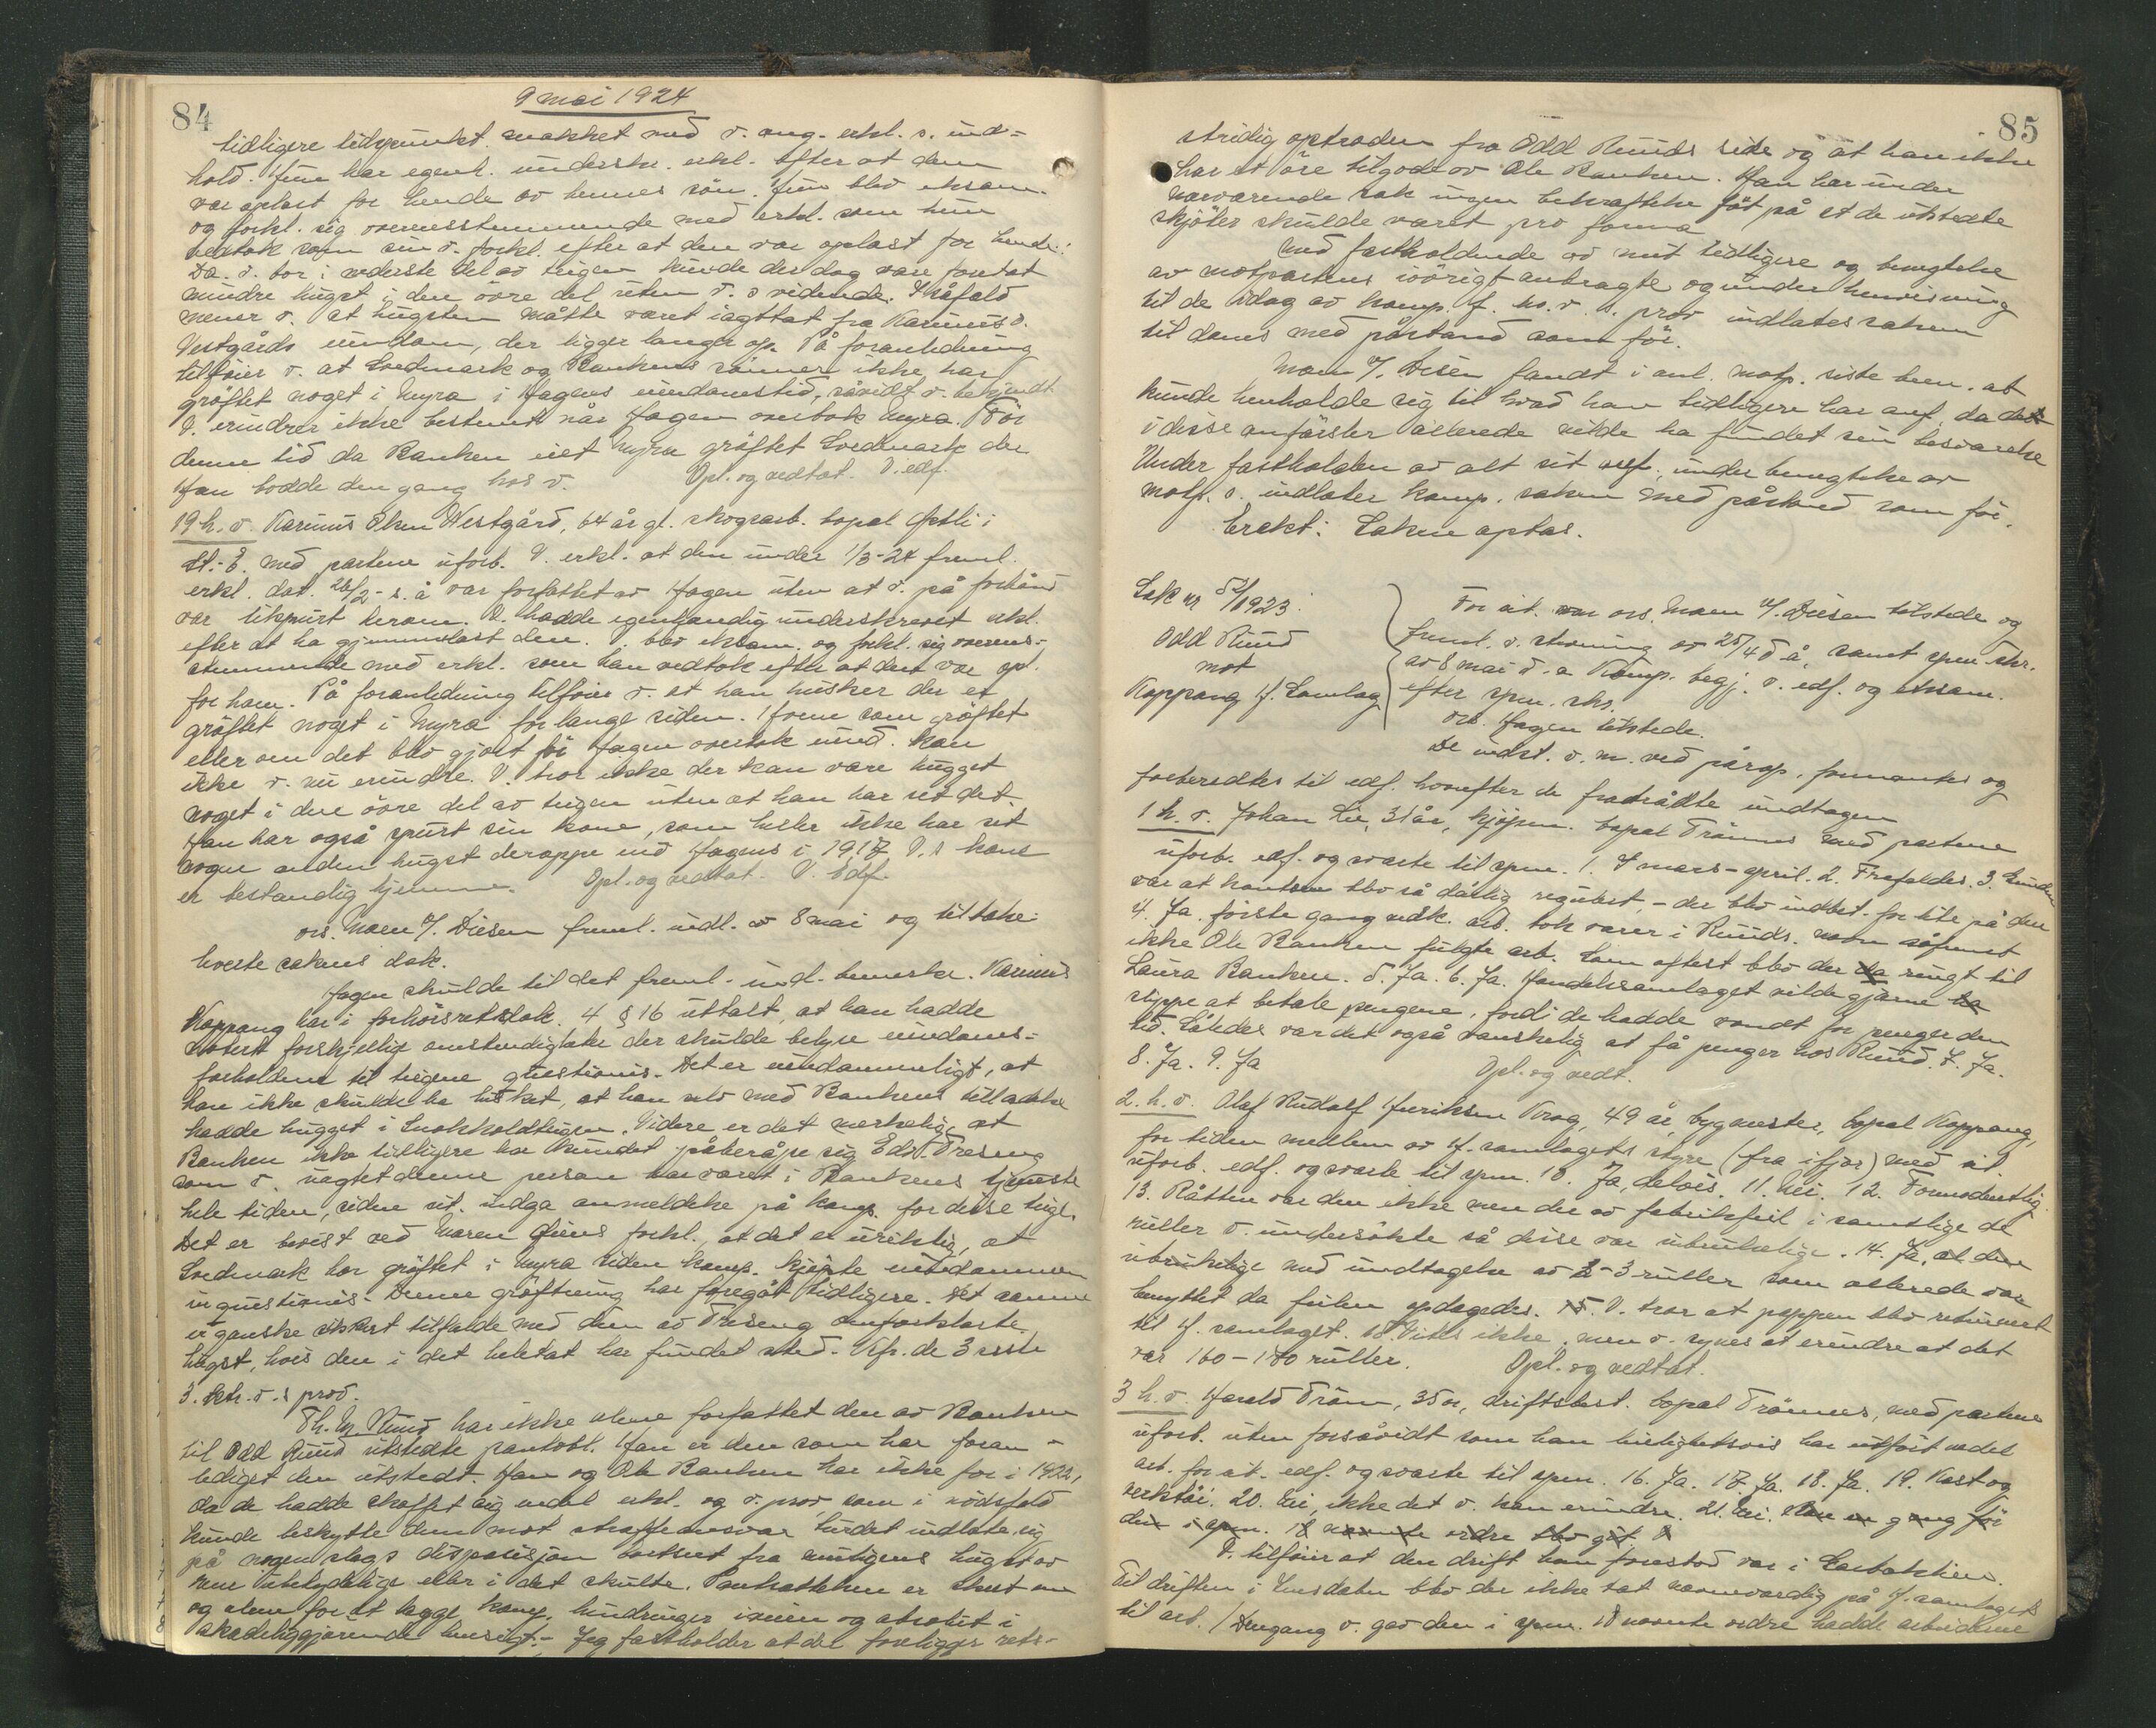 84
9 mai 1924
tidligere tidspunkt snakket med v. ang. erkl. s. ind-
hold. Hun har egenh. underskr. erkl. efter at den
var oplæst for hende av hennes sön. Hun blev eksam.
og forkl. sig overensstemmende med erkl. som hun
vedtok som sin v. forkl. efter at den var oplæst for hende:
Da v. bor i nederste del av teigen kunde der dog være foretat
mindre hugst i den övre del uten v. s vidende. I såfald
mener v. at hugsten måtte været iagttat fra Karinus O.
Vestgårds eiendom, der ligger længer op. På foranledning
tilföier v. at Svedmark og Bankens sönner ikke har
gröftet noget i Myra i Hagens eiendomstid, såvidt v. bekjendt.
V. erindrer ikke bestemt når Hagen overtok Myra. För
denne tid da Banken eiet Myra gröftet Svedmark der
Han bodde den gang hos v. Opl. og vedtat. V. edf.
19 h. v. Karinus Olsen Westgård, 64 år gl. skogsarb. bopæl Östli i
St.-E. med partene uforb. V. erkl. at den under 1/3-24 freml.
erkl. dat. 26/2 - s. å var forfattet av Hagen uten at v. på forhånd
var utspurt herom. V. hadde egenhændig underskrevet erkl.
efter at ha gjennemlæst den. V. blev eksam. og forkl. sig overens-
stemmende med erkl. som han vedtok efter at den var opl.
for ham. På foranledning tilföier v. at han husker der er
gröftet noget i Myra for længe siden. Hvem som gröftet
eller om det blev gjort för Hagen overtok eiend. kan
ikke v. nu erindre. V. tror ikke der kan være hugget
noget i den övre del av teigen uten at han har set det.
Han har også spurt sin kone, som heller ikke har set
nogen anden hugst deroppe end Hagens i 1917 V. s kone
er bestandig hjemme. Opl. og vedtat. V. Edf.
ors. Moen f. Diesen freml. indl. av 8 mai og tilbake-
leverte sakens dok.
Hagen skulde til det freml. indl. bemerke. Karinus
Koppang har i forhörsretsdok. 4 § 16 uttalt, at han hadde
notert forskjellig omstændigheter der skulde belyse eiendoms-
forholdene til teigene questionis. Det er eiendommeligt, at
han ikke skulde ha husket, at han selv med Bankens tilladelse
hadde hugget i Snokholdteigen. Videre er det merkelig, at
Banken ikke tidligere har kundet påberåpe sig Edv. Treseng
som v. uagtet denne person har været i Bankens tjeneste
hele tiden, siden sit. indga anmeldelse på komp. for disse teiger.
Det er bevist ved Maren Öiens forkl. at det er uriktig, at
Svedmark har gröftet i Myra siden komp. kjöpte eiendommen
in questionis. Denne gröftning har foregåt tidligere. Det samme
er ganske sikkert tilfælde med den av Treseng omforklarte
hugst, hvis den i det heletat har fundet sted. Kfr. de 3 siste
3. ktr. v. s prov.
Th. M. Ruud har ikke alene forfattet den av Banken
til Odd Ruud utstedte pantobl. Han er den som har foran-
lediget den utstedt. Han og Ole Banken har ikke för i 1922,
da de hadde skaffet sig endel erkl. og v. prov, som i nödsfald
kunde beskytte dem mot straffeansvar turdet indlate sig
på nogen slags disposisjon bortset fra muligens hugst av
mer ubetydelige eller i det skulte. Pantsættelsen er skedt ene
og alene for at lægge komp. hindringer iveien og absolut i
skadeliggjörende hensigt.- Jeg fastholder at det foreligger rets-
85
stridig optræden fra Odd Ruuds side og at han ikke
har et öre tilgode av Ole Banken. Han har under
nærværende sak ingen bekræftelse fåt på at de utstedte
skjöter skulde været pro forma
Med fastholdende av mit tidligere og benegtelse
av motpartens iövrigt anbragte og under henvisning
til de idag av komp. f. ho. v. s. prov indlates saken
til doms med påstand som för.
Moen f. Diesen fandt i anl. motp. siste bem. at
kunde henholde sig til hvad han tidligere har anf. da det
i disse anförsler allerede vilde ha fundet sin besvarelse
Under fastholden av alt sit anf. under benegtelse av
motp. s. indlater komp. saken med påstand som för.
Erekt: Saken optas.
Sak nr 51/1923.
Odd Ruud
mot
Koppang H. Samlag
For sit. var ors. Moen f. Diesen tilstede og
freml. v. stevning av 25/4 d å, samt spm. skr.
av 8 mai d. a Komp. begj. v. edf. og eksam.
efter spm. skr.
Ors. Hagen tilstede.
De indst. v. m. ved pårop. formantes og
forberedtes til edf. hvorefter de fratrådte undtagen
1 h. v. Johan Lie, 31 år, kjöpm. bopæl Trönnes med partene
uforb. edf. og svarte til spm. 1. I mars-april. 2. Frafaldes. 3. Grunden
var at kontoen blev så dårlig regulert, - der blev indbet. for lite på den
4. Ja. förste gang vedk. arb. tok varer i Ruuds. navn såfremt
ikke Ole Banken fulgte arb. Som oftest blev der ringt til
Laura Banken. 5. Ja. 6. Ja. Handelssamlaget vilde gjerne
slippe at betale pengene, fordi de hadde vondt for penger den
tid. Således var det også vanskelig at få penger hos Ruud. 7. Ja.
8. Ja. 9. Ja Opl. og vedt.
2. h. v. Olaf Rudolf Henriksen Krog, 49 år, bygmester, bopæl Koppang,
for tiden medlem av H. samlagets styre (fra ifjor) med sit.
uforb. edf. og svarte til spm. 10. Ja, delvis. 11. Nei. 12. Formodentlig.
13. Råtten var den ikke men der var fabriksfeil i samtlige de
ruller v. undersökte så disse var ubrukelige. 14. Ja, at den
ubrukelige med undtagelse av 2-3 ruller som allerede var
benyttet da feilen opdagedes. 15. V. tror at pappen blev returnert
til H. samlaget. 18. Vites ikke, men v. synes at erindre at det
var 160-180 ruller. Opl. og vedtat.
3 h. v. Harald Tröen, 35 år, driftsbest. bopæl Trönnes, med partene
uforb. uten forsåvidt som han leilighetsvis har utfört endel
arb. for sit. edf. og svarte til spm. 16. Ja. 17. Ja. 18. Ja. 19. Kost og
verktöi. 20. Nei, ikke det v. kan erindre. 21. Nei.
V. tilföier at den drift han forestod var i
Til driften i blev der ikke tat nævneværdig på H. samlaget
til arb. / Dengang v. gav den i spm. 18 nævnte ordre hadde arbeiderne